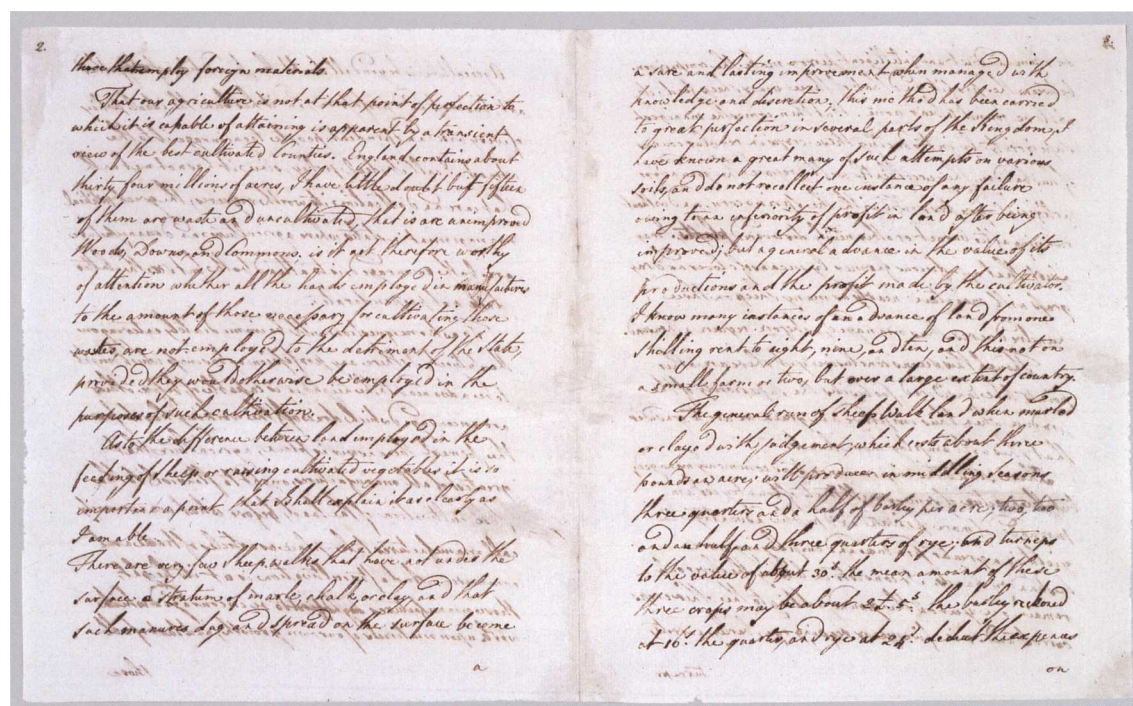 2.
those that employ foreign materials.
That our agriculture is not at that point of perfection to
which it is capable of attaining is apparent by a transient
view of the best cultivated Counties. England contains about
thirty four millions of acres, I have little doubt but fifteen
of them are waste and uncultivated, that is are unimproved
Woods, Downs, and Commons. is it not therefore worthy
of attention whether all the hands employed in manufactures
to the amount of those necessary for cultivating those
wastes, are not employed to the detriment of the State,
provided they would otherwise be employed in the
purposes of such cultivation.
As to the difference between land employed in the
feeding of sheep or raising cultivated vegetables it is so
important a point that I shall explain it as clearly as
I am able
There are very few sheep walks that have not under the
surface a stratum of marle, chalk, or clay, and that
such manures dug and spread on the surface become
a
a sure and lasting improvement when managed with
knowledge and discretion. this method has been carried
to great perfection in several parts of the Kingdom, I
have known a great many of such attempts on various
soils, and do not recollect one instance of any failure
owing to an inferiority of profit in land after being
improved; but a general advance in the value of its
productions and the profit made by the cultivator.
I know many instances of an advance of land from one
shilling rent to eight, nine, and ten, and this not on
a small farm or two, but over a large extent of country.
The general run of Sheep Walk land when marled
or clayed with judgement, which costs about three
pounds an acre, will produce in middling seasons
three quarters and a half of barley per acre; two, too
and an half, and three quarters of rye; and turneps
to the value of about 30s. the mean amount of these
three crops may be about 2£. 5s. the barley reckoned
at 16s. the quarter, and rye at 24s. deduct the expences
on